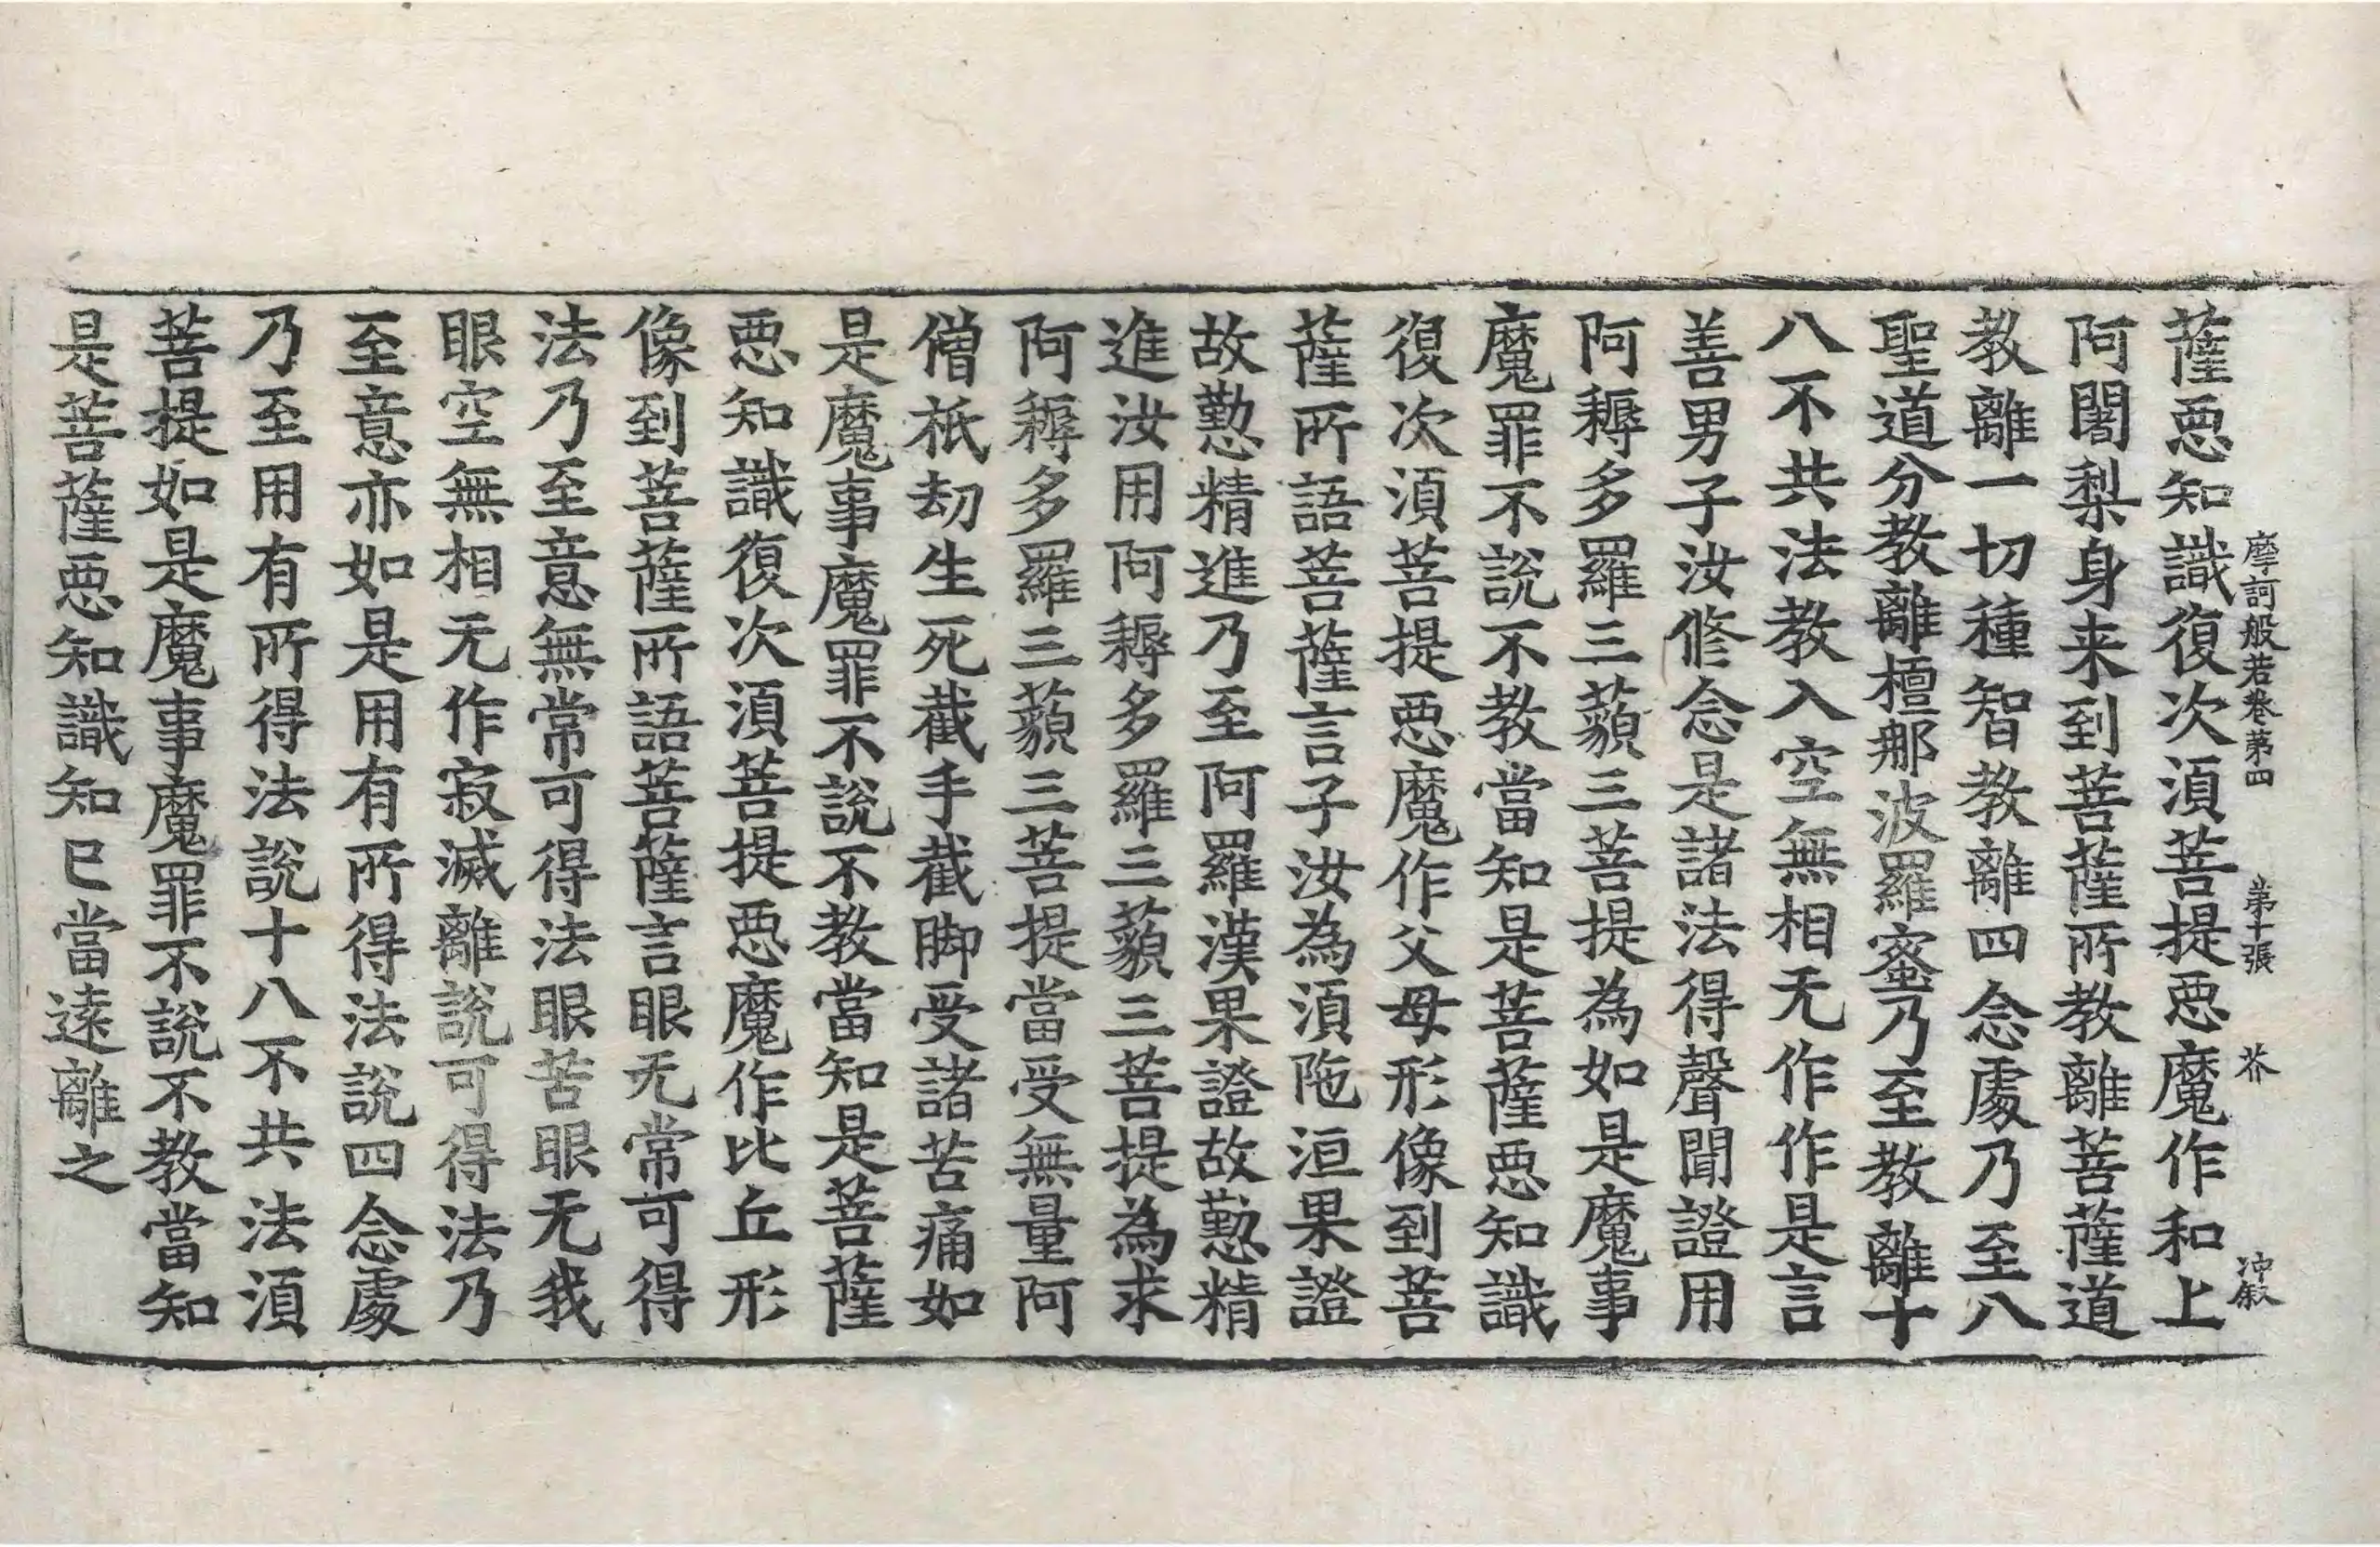 摩訶般若卷第四 第十張 芥 冲叙
薩惡知識復次須菩提惡魔作和上
阿闍梨身来到菩薩所教離菩薩道
教離一切種智教離四念處乃至八
聖道分教離檀那波羅蜜乃至教離十
八不共法教入空無相无作作是言
善男子汝修念是諸法得聲聞證用
阿耨多羅三藐三菩提為如是魔事
魔罪不説不教當知是菩薩惡知識
復次須菩提惡魔作父母形像到菩
薩所語菩薩言子汝為須陁洹果證
故懃精進乃至阿羅漢果證故懃精
進汝用阿耨多羅三藐三菩提為求
阿耨多羅三藐三菩提當受無量阿
僧祇劫生死截手截脚受諸苦痛如
是魔事魔罪不説不教當知是菩薩
惡知識復次須菩提惡魔作比丘形
像到菩薩所語菩薩言眼无常可得
法乃至意無常可得法眼苦眼无我
眼空無相无作寂滅離説可得法乃
至意亦如是用有所得法説四念處
乃至用有所得法説十八不共法須
菩提如是魔事魔罪不説不教當知
是菩薩惡知識知已當遠離之